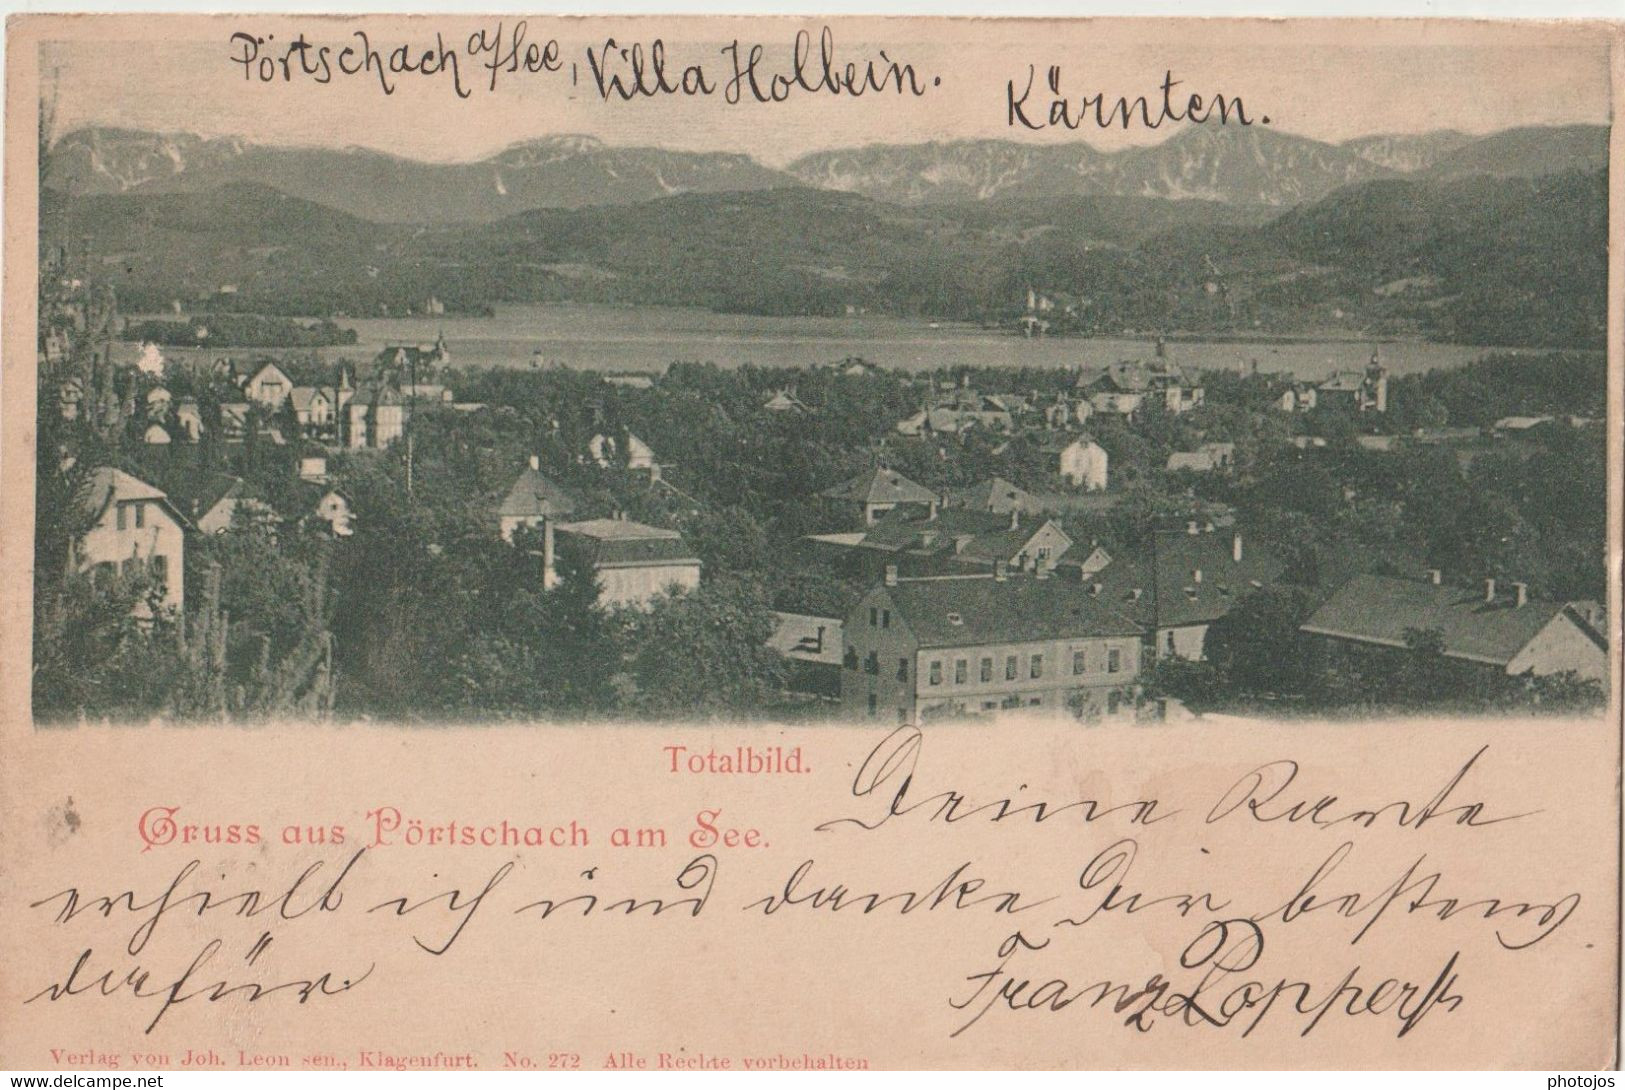 Pörtschach a/See, Villa Holbein.
Kärnten.
Totalbild.
Gruss aus Pörtschach am See.
Deine Karte
erhielt ich und danke Dir bestens
dafür.
Franz
Verlag von Joh. Leon sen., Klagenfurt. No. 272 Alle Rechte vorbehalten
www.delcampe.net
photojos